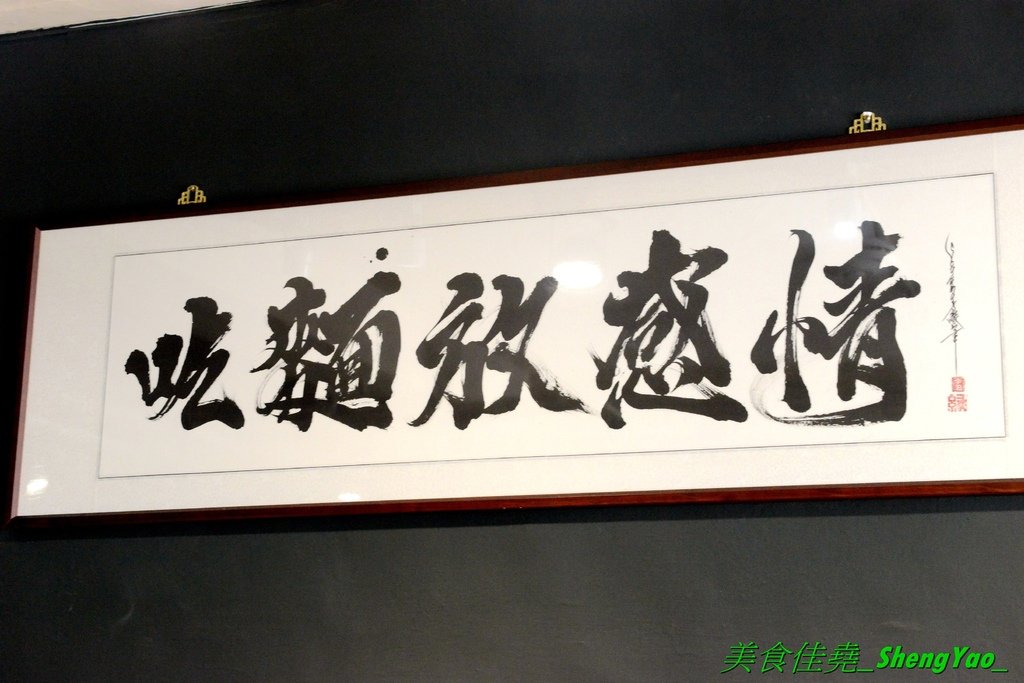 吃麵放感情
美食佳堯_ShengYao_